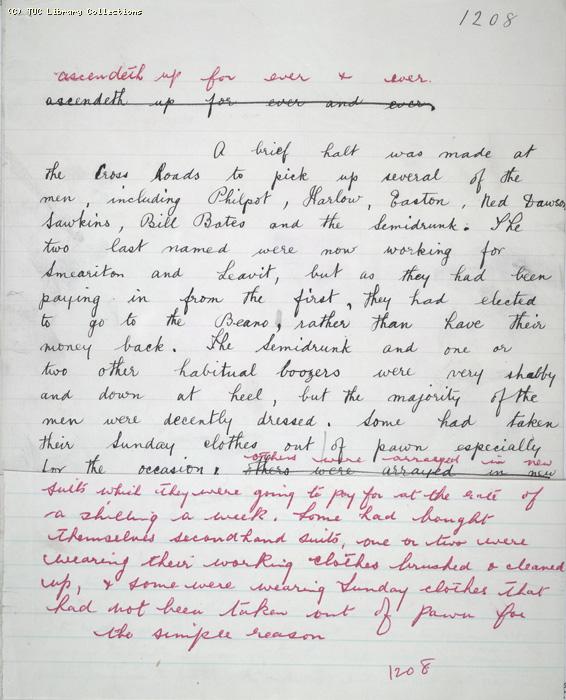 (C) TUC Library Collections
1208
ascendeth up for ever & ever.
ascendeth up for ever and ever,
A brief halt was made at
the Cross Roads to pick up several of the
men, including Philpot, Harlow, Easton, Ned Dawson
Sawkins, Bill Bates and the Semidrunk. The
two last named were now working for
Smeariton and Leavit, but as they had been
paying in from the first, they had elected
to go to the Beano, rather than have their
money back. The Semidrunk and one or
two other habitual boozers were very shabby
and down at heel, but the majority of the
men were decently dressed. Some had taken
their Sunday clothes out of pawn especially
for the occasion. others were arrayed in new
others were arrayed in new
suits which they were going to pay for at the rate of
a shilling a week. Some had bought
themselves secondhand suits, one or two were
wearing their working clothes brushed & cleaned
up, & some were wearing Sunday clothes that
had not been taken out of pawn for
the simple reason
1208